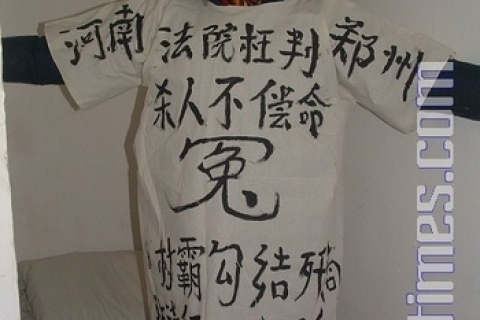 河南 法院枉判 郑州
杀人不偿命
冤
村霸勾结
times.com